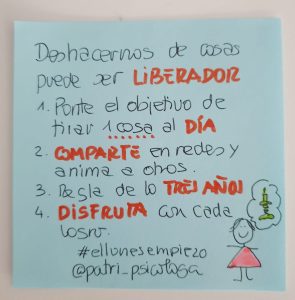 Deshacernos de cosas
puede ser LIBERADOR
1. Ponte el objetivo de
tirar 1 cosa al DÍA
2. COMPARTE en redes y
anima a otros.
3. Regla de lo TRES AÑOS
4. DISFRUTA con cada
logro.
#ellunesempiezo
@patri_psicologa